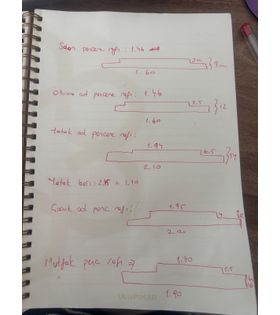 Salon pencere rafı: 1.46
2cm
9cm
1.60
Oturma od pencere rafı: 1.46
2.5
12
1.60
Yatak od pencere rafı:
1.94
14
2.10
Yatak bazı: × 1.10
Çocuk od penc rafı:
1.95
4
2.00
Mutfak penc rafı =>
1.70
2.5
1.90
ULUPINAR